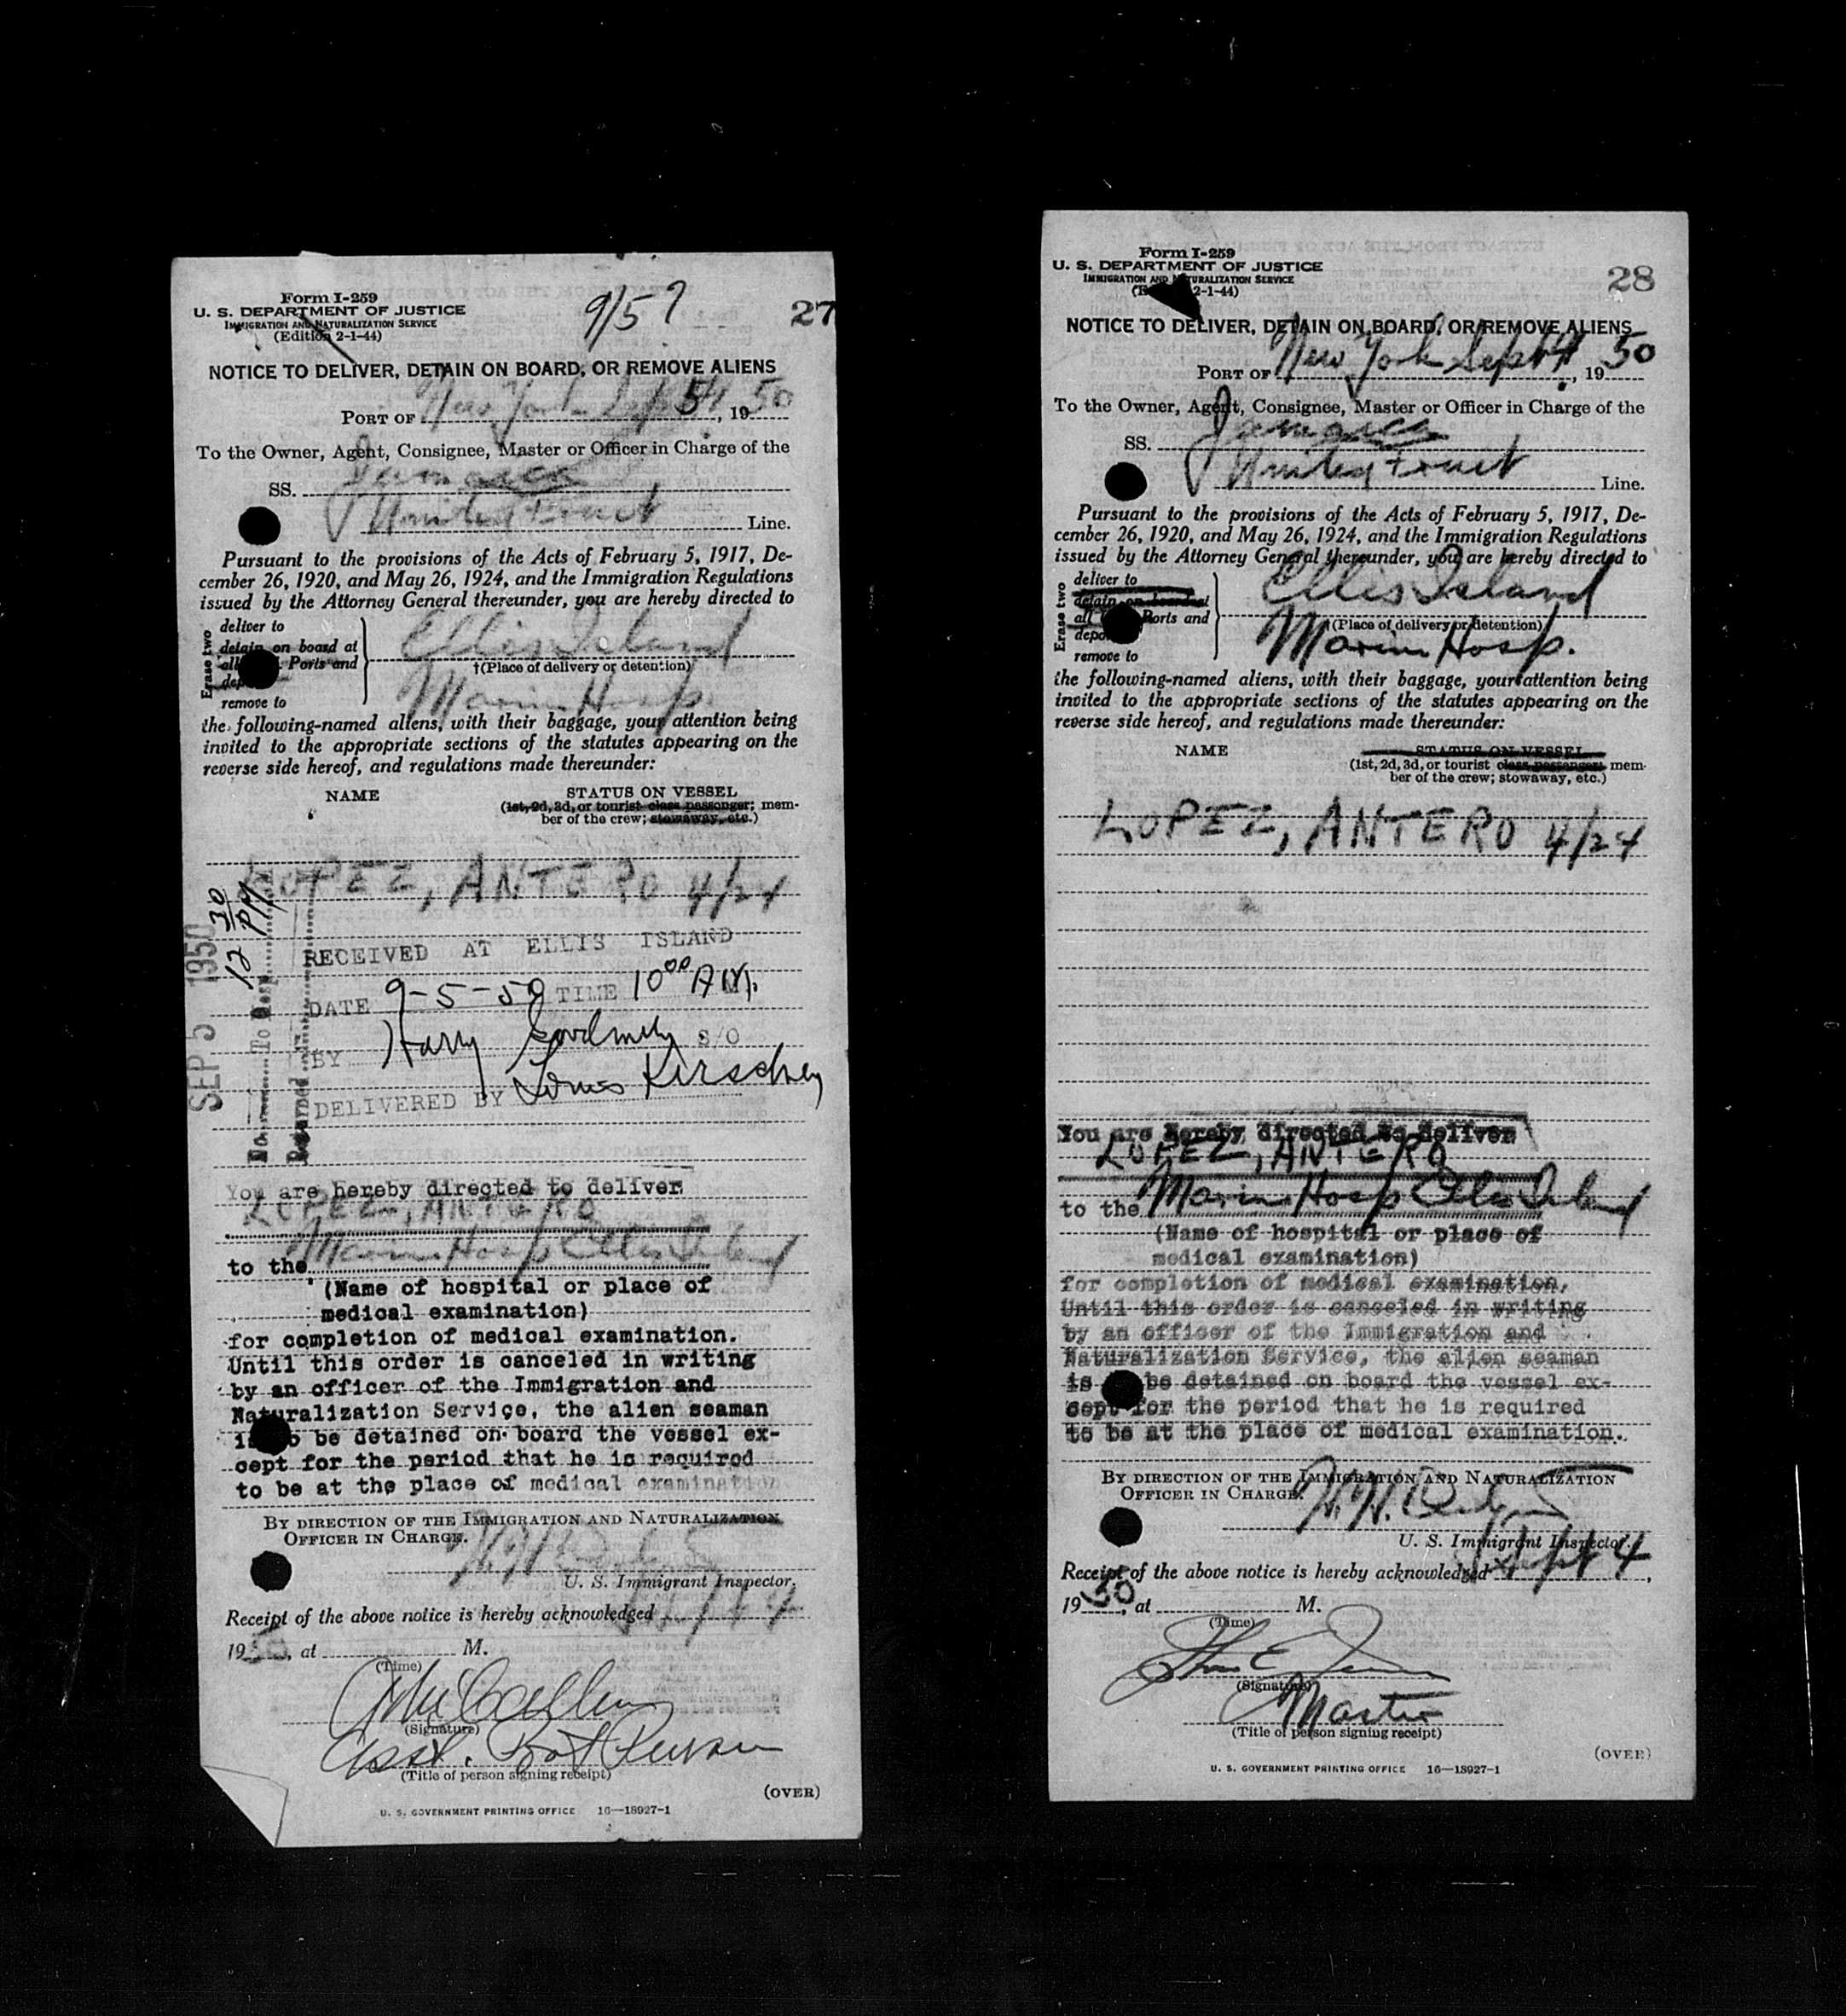 Form I-259
U. S. DEPARTMENT OF JUSTICE
IMMIGRATION AND NATURALIZATION SERVICE
(Edition 2-1-44)
9/5?
27
NOTICE TO DELIVER, DETAIN ON BOARD, OR REMOVE ALIENS
PORT OF New York Sept 5, 1950
To the Owner, Agent, Consignee, Master or Officer in Charge of the
SS. Jamaica
United Fruit Line.
Pursuant to the provisions of the Acts of February 5, 1917, De-
cember 26, 1920, and May 26, 1924, and the Immigration Regulations
issued by the Attorney General thereunder, you are hereby directed to
Erase two
deliver to
detain on board at
all Ports and
remove to
Ellis Island
†(Place of delivery or detention)
Marine Hosp.
the following-named aliens, with their baggage, your attention being
invited to the appropriate sections of the statutes appearing on the
reverse side hereof, and regulations made thereunder:
NAME
STATUS ON VESSEL
(1st, 2d, 3d, or tourist class passenger; mem-
ber of the crew; stowaway, etc.)
LOPEZ, ANTERO 4/24
SEP 5 1950
12 30 PM
To Hosp
Returned
RECEIVED AT ELLIS ISLAND
DATE 9-5-50 TIME 10 00 A M.
BY Harry S/O
DELIVERED BY Louis
You are hereby directed to deliver
LOPEZ, ANTERO
to the Marine Hosp Ellis Island
(Name of hospital or place of
medical examination)
for completion of medical examination.
Until this order is canceled in writing
by an officer of the Immigration and
Naturalization Service, the alien seaman
is to be detained on board the vessel ex-
cept for the period that he is required
to be at the place of medical examination
BY DIRECTION OF THE IMMIGRATION AND NATURALIZATION
OFFICER IN CHARGE.
U. S. Immigrant Inspector.
Receipt of the above notice is hereby acknowledged Sept 4
1950, at M.
(Time)
(Signature)
Asst.
(Title of person signing receipt)
(OVER)
U. S. GOVERNMENT PRINTING OFFICE 16—18927-1
Form I-259
U. S. DEPARTMENT OF JUSTICE
IMMIGRATION AND NATURALIZATION SERVICE
2-1-44)
28
NOTICE TO DELIVER, DETAIN ON BOARD, OR REMOVE ALIENS
PORT OF New York Sept 4, 1950
To the Owner, Agent, Consignee, Master or Officer in Charge of the
SS. Jamaica
United Fruit Line.
Pursuant to the provisions of the Acts of February 5, 1917, De-
cember 26, 1920, and May 26, 1924, and the Immigration Regulations
issued by the Attorney General thereunder, you are hereby directed to
Erase two
deliver to
detain on board at
all Ports and
remove to
Ellis Island
†(Place of delivery or detention)
Marine Hosp.
the following-named aliens, with their baggage, your attention being
invited to the appropriate sections of the statutes appearing on the
reverse side hereof, and regulations made thereunder:
NAME
STATUS ON VESSEL
(1st, 2d, 3d, or tourist class passenger; mem-
ber of the crew; stowaway, etc.)
LOPEZ, ANTERO 4/24
You are hereby directed to deliver
LOPEZ, ANTERO
to the Marine Hosp Ellis Island
(Name of hospital or place of
medical examination)
for completion of medical examination.
Until this order is canceled in writing
by an officer of the Immigration and
Naturalization Service, the alien seaman
is be detained on board the vessel ex-
cept for the period that he is required
to be at the place of medical examination.
BY DIRECTION OF THE IMMIGRATION AND NATURALIZATION
OFFICER IN CHARGE.
U. S. Immigrant Inspector.
Receipt of the above notice is hereby acknowledged Sept 4,
1950, at M.
(Time)
(Signature)
Master
(Title of person signing receipt)
(OVER)
U. S. GOVERNMENT PRINTING OFFICE 16—18927-1